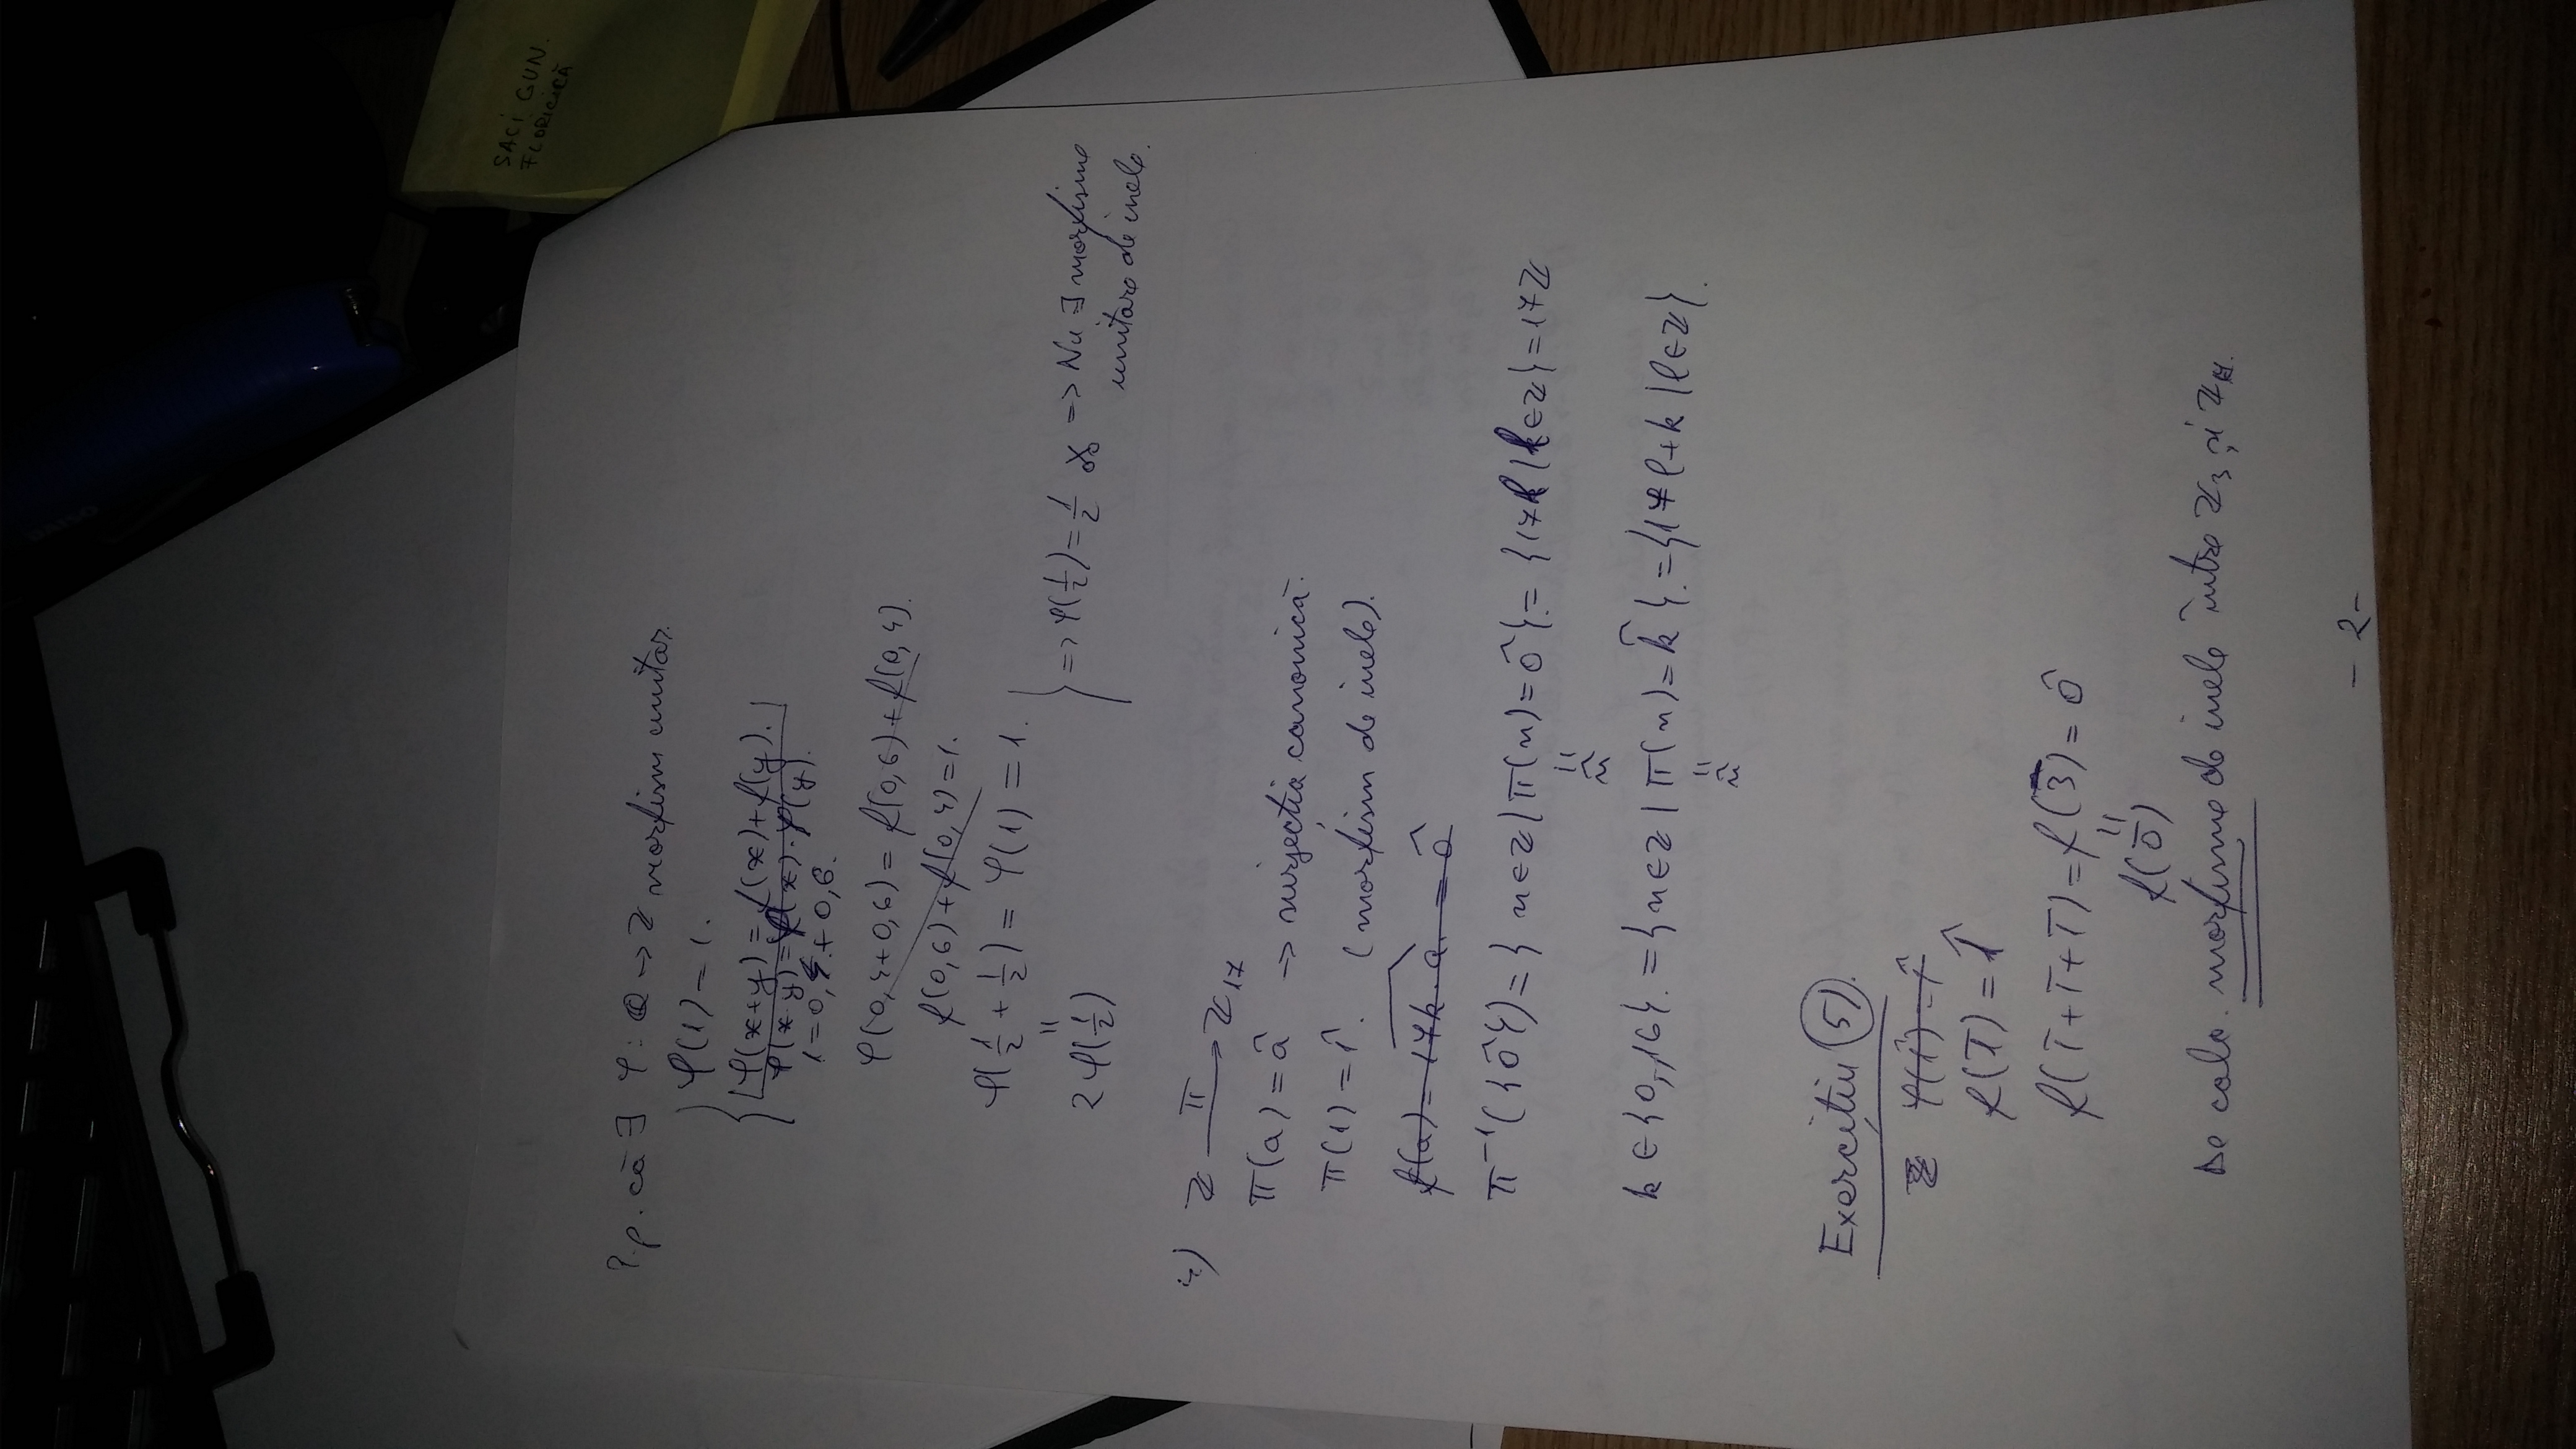 SACI GUN.
FLORICICĂ
P.p. că ∃ φ: Q → Z morfism unitar.
φ(1) = 1.
φ(x+y) = f(x) + f(y).
φ(x·y) = φ(x)·φ(y).
1 = 0,4 + 0,6.
φ(0,4+0,6) = f(0,6) + f(0,4).
f(0,6) + f(0,4) = 1.
φ(1/2 + 1/2) = φ(1) = 1.
=
2φ(1/2)
=> φ(1/2) = 1/2 => Nu ∃ morfisme
unitare de inele.
4) Z —π→ Z17
π(a) = â → surjecția canonică.
π(1) = 1̂. (morfism de inele).
f(a) = 17k·a = 0̂
π⁻¹({0̂}) = {n∈Z | π(n) = 0̂} = {17k | k∈Z} = 17Z
=
n̂
k ∈ {0,..,16}. = {n∈Z | π(n) = k̂}. = {17l+k | l∈Z}.
=
n̂
Exercițiu 5).
φ(1̂) = 1̂
f(1̄) = 1̂
f(1̄+1̄+1̄) = f(3̄) = 0̂
=
f(0̄)
De calc. morfisme de inele între Z3 și
- 2 -